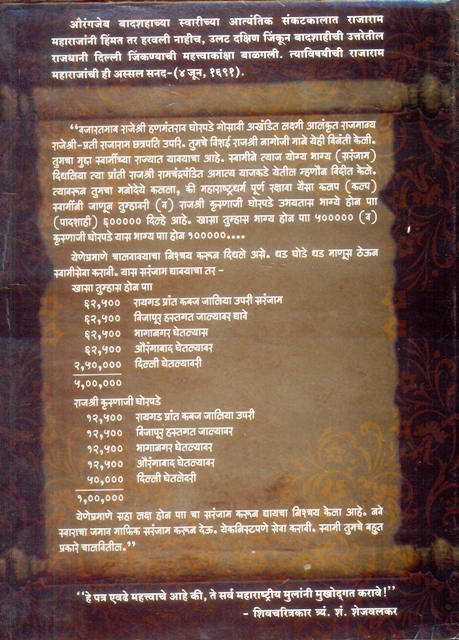 औरंगजेब बादशहाच्या स्वारीच्या आत्यंतिक संकटकालात राजाराम
महाराजांनी हिंमत तर हरवली नाहीच, उलट दक्षिण जिंकून बादशाहीची उत्तरेतील
राजधानी दिल्ली जिंकण्याची महत्त्वाकांक्षा बाळगली. त्याविषयीची राजाराम
महाराजांची ही अस्सल सनद-(४ जून, १६९१).
“बजारतमाब राजेश्री हणमंतराव घोरपडे गोसावी अखंडित लक्ष्मी आलंकृत राजमान्य
राजेश्री-प्रती राजाराम छत्रपति उपरि. तुमचे विशई राजश्री नागोजी माने येही विनंती केली.
तुमचा मुद्दा स्वामींच्या राज्यात यावयाचा आहे. स्वामीने त्यास योग्य भाग्य (सरंजाम)
दिधलिया त्या प्रांती राजश्री रामचंद्रपंडित अमात्य याजकडे येतील म्हणौन विदीत केले.
त्यावरून तुमचा मनोदये कळला, की महाराष्ट्रधर्म पूर्ण रक्षावा यैसा कलप (कल्प)
स्वामींनी जाणून तुम्हावरी (व) राजश्री कृस्णाजी घोरपडे उभयतास भाग्ये होन पा॥
(पादशाही) ६००००० दिल्हे आहे. खासा तुम्हास भाग्य होन पा॥ ५००००० (व)
कृस्णाजी घोरपडे यास भाग्य पा॥ होन १०००००....
येणेप्रमाणे चालवावयाचा निश्चय करून दिधले असे. धड घोडे धड माणूस ठेऊन
स्वामीसेवा करावी. यास सरंजाम द्यावयाचा तर -
खासा तुम्हास होन पा॥
६२,५०० रायगड प्रांत कबज जालिया उपरी सरंजाम
६२,५०० विजापूर हस्तगत जाल्यावर द्यावे
६२,५०० भागानगर घेतल्यास
६२,५०० औरंगाबाद घेतल्यावर
२,५०,००० दिल्ली घेतल्यावरी
५,००,०००
राजश्री कृस्णाजी घोरपडे
१२,५०० रायगड प्रांत कबज जालिया उपरी
१२,५०० विजापूर हस्तगत जाल्यावर
१२,५०० भागानगर घेतल्यावर
१२,५०० औरंगाबाद घेतल्यावर
५०,००० दिल्ली घेतलेवरी
१,००,०००
येणेप्रमाणे सहा लक्ष होन पा॥ चा सरंजाम करून द्यायचा निश्चय केला आहे. नवे
स्वाराचा जमाव माफिक सरंजाम करून देऊ. येकनिस्टपणे सेवा करावी. स्वामी तुमचे बहुत
प्रकारे चालवितील.”
“हे पत्र एवढे महत्त्वाचे आहे की, ते सर्व महाराष्ट्रीय मुलांनी मुखोद्गत करावे!”
- शिवचरित्रकार त्र्यं. शं. शेजवलकर